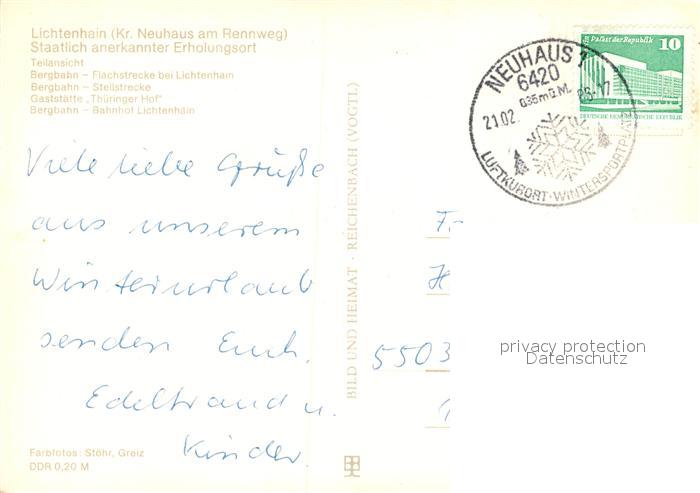 Lichtenhain (Kr. Neuhaus am Rennweg)
Staatlich anerkannter Erholungsort
Teilansicht
Bergbahn – Flachstrecke bei Lichtenhain
Bergbahn – Steilstrecke
Gaststätte „Thüringer Hof"
Bergbahn – Bahnhof Lichtenhain
Viele liebe Grüße
aus unserem
Winterurlaub
senden Euch.
Edeltraud u.
Kinder.
Farbfotos: Stöhr, Greiz
DDR 0,20 M
BILD UND HEIMAT · REICHENBACH (VOGTL)
NEUHAUS 1
6420
835 m ü. M.
21.02. 85-17
LUFTKURORT · WINTERSPORTPLATZ
Palast der Republik 10
DEUTSCHE DEMOKRATISCHE REPUBLIK
Fr
H
5503
privacy protection
Datenschutz